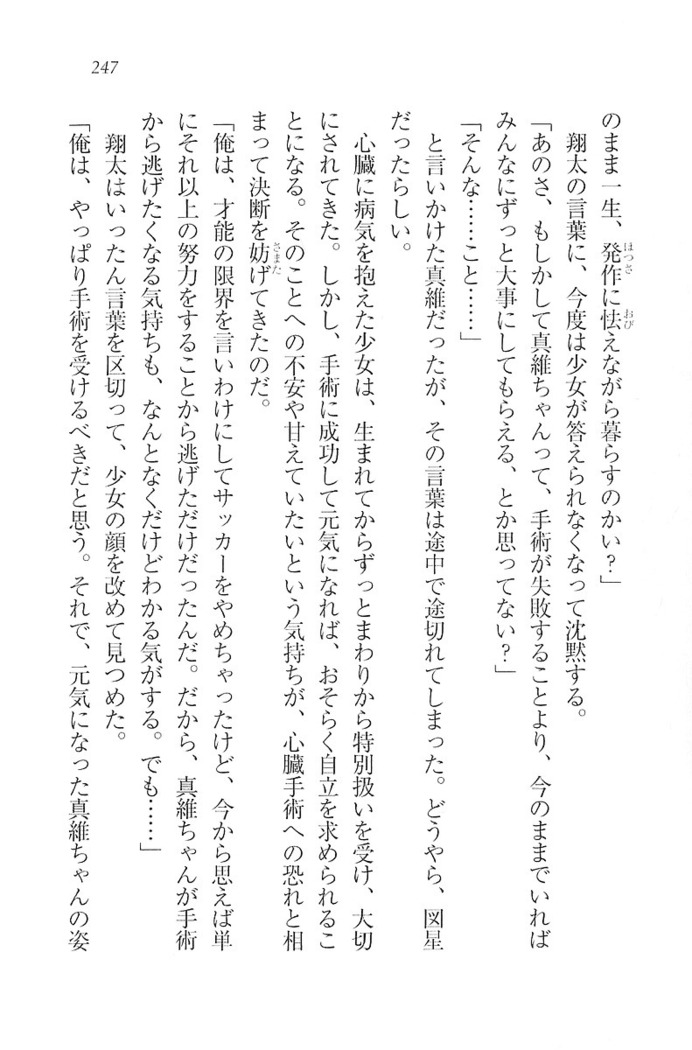 247
のまま一生、発作に怯えながら暮らすのかい？」
翔太の言葉に、今度は少女が答えられなくなって沈黙する。
「あのさ、もしかして真維ちゃんって、手術が失敗することより、今のままでいれば
みんなにずっと大事にしてもらえる、とか思ってない？」
「そんな……こと……」
と言いかけた真維だったが、その言葉は途中で途切れてしまった。どうやら、図星
だったらしい。
心臓に病気を抱えた少女は、生まれてからずっとまわりから特別扱いを受け、大切
にされてきた。しかし、手術に成功して元気になれば、おそらく自立を求められるこ
とになる。そのことへの不安や甘えていたいという気持ちが、心臓手術への恐れと相
まって決断を妨げてきたのだ。
「俺は、才能の限界を言いわけにしてサッカーをやめちゃったけど、今から思えば単
にそれ以上の努力をすることから逃げただけだったんだ。だから、真維ちゃんが手術
から逃げたくなる気持ちも、なんとなくだけどわかる気がする。でも……」
翔太はいったん言葉を区切って、少女の顔を改めて見つめた。
「俺は、やっぱり手術を受けるべきだと思う。それで、元気になった真維ちゃんの姿